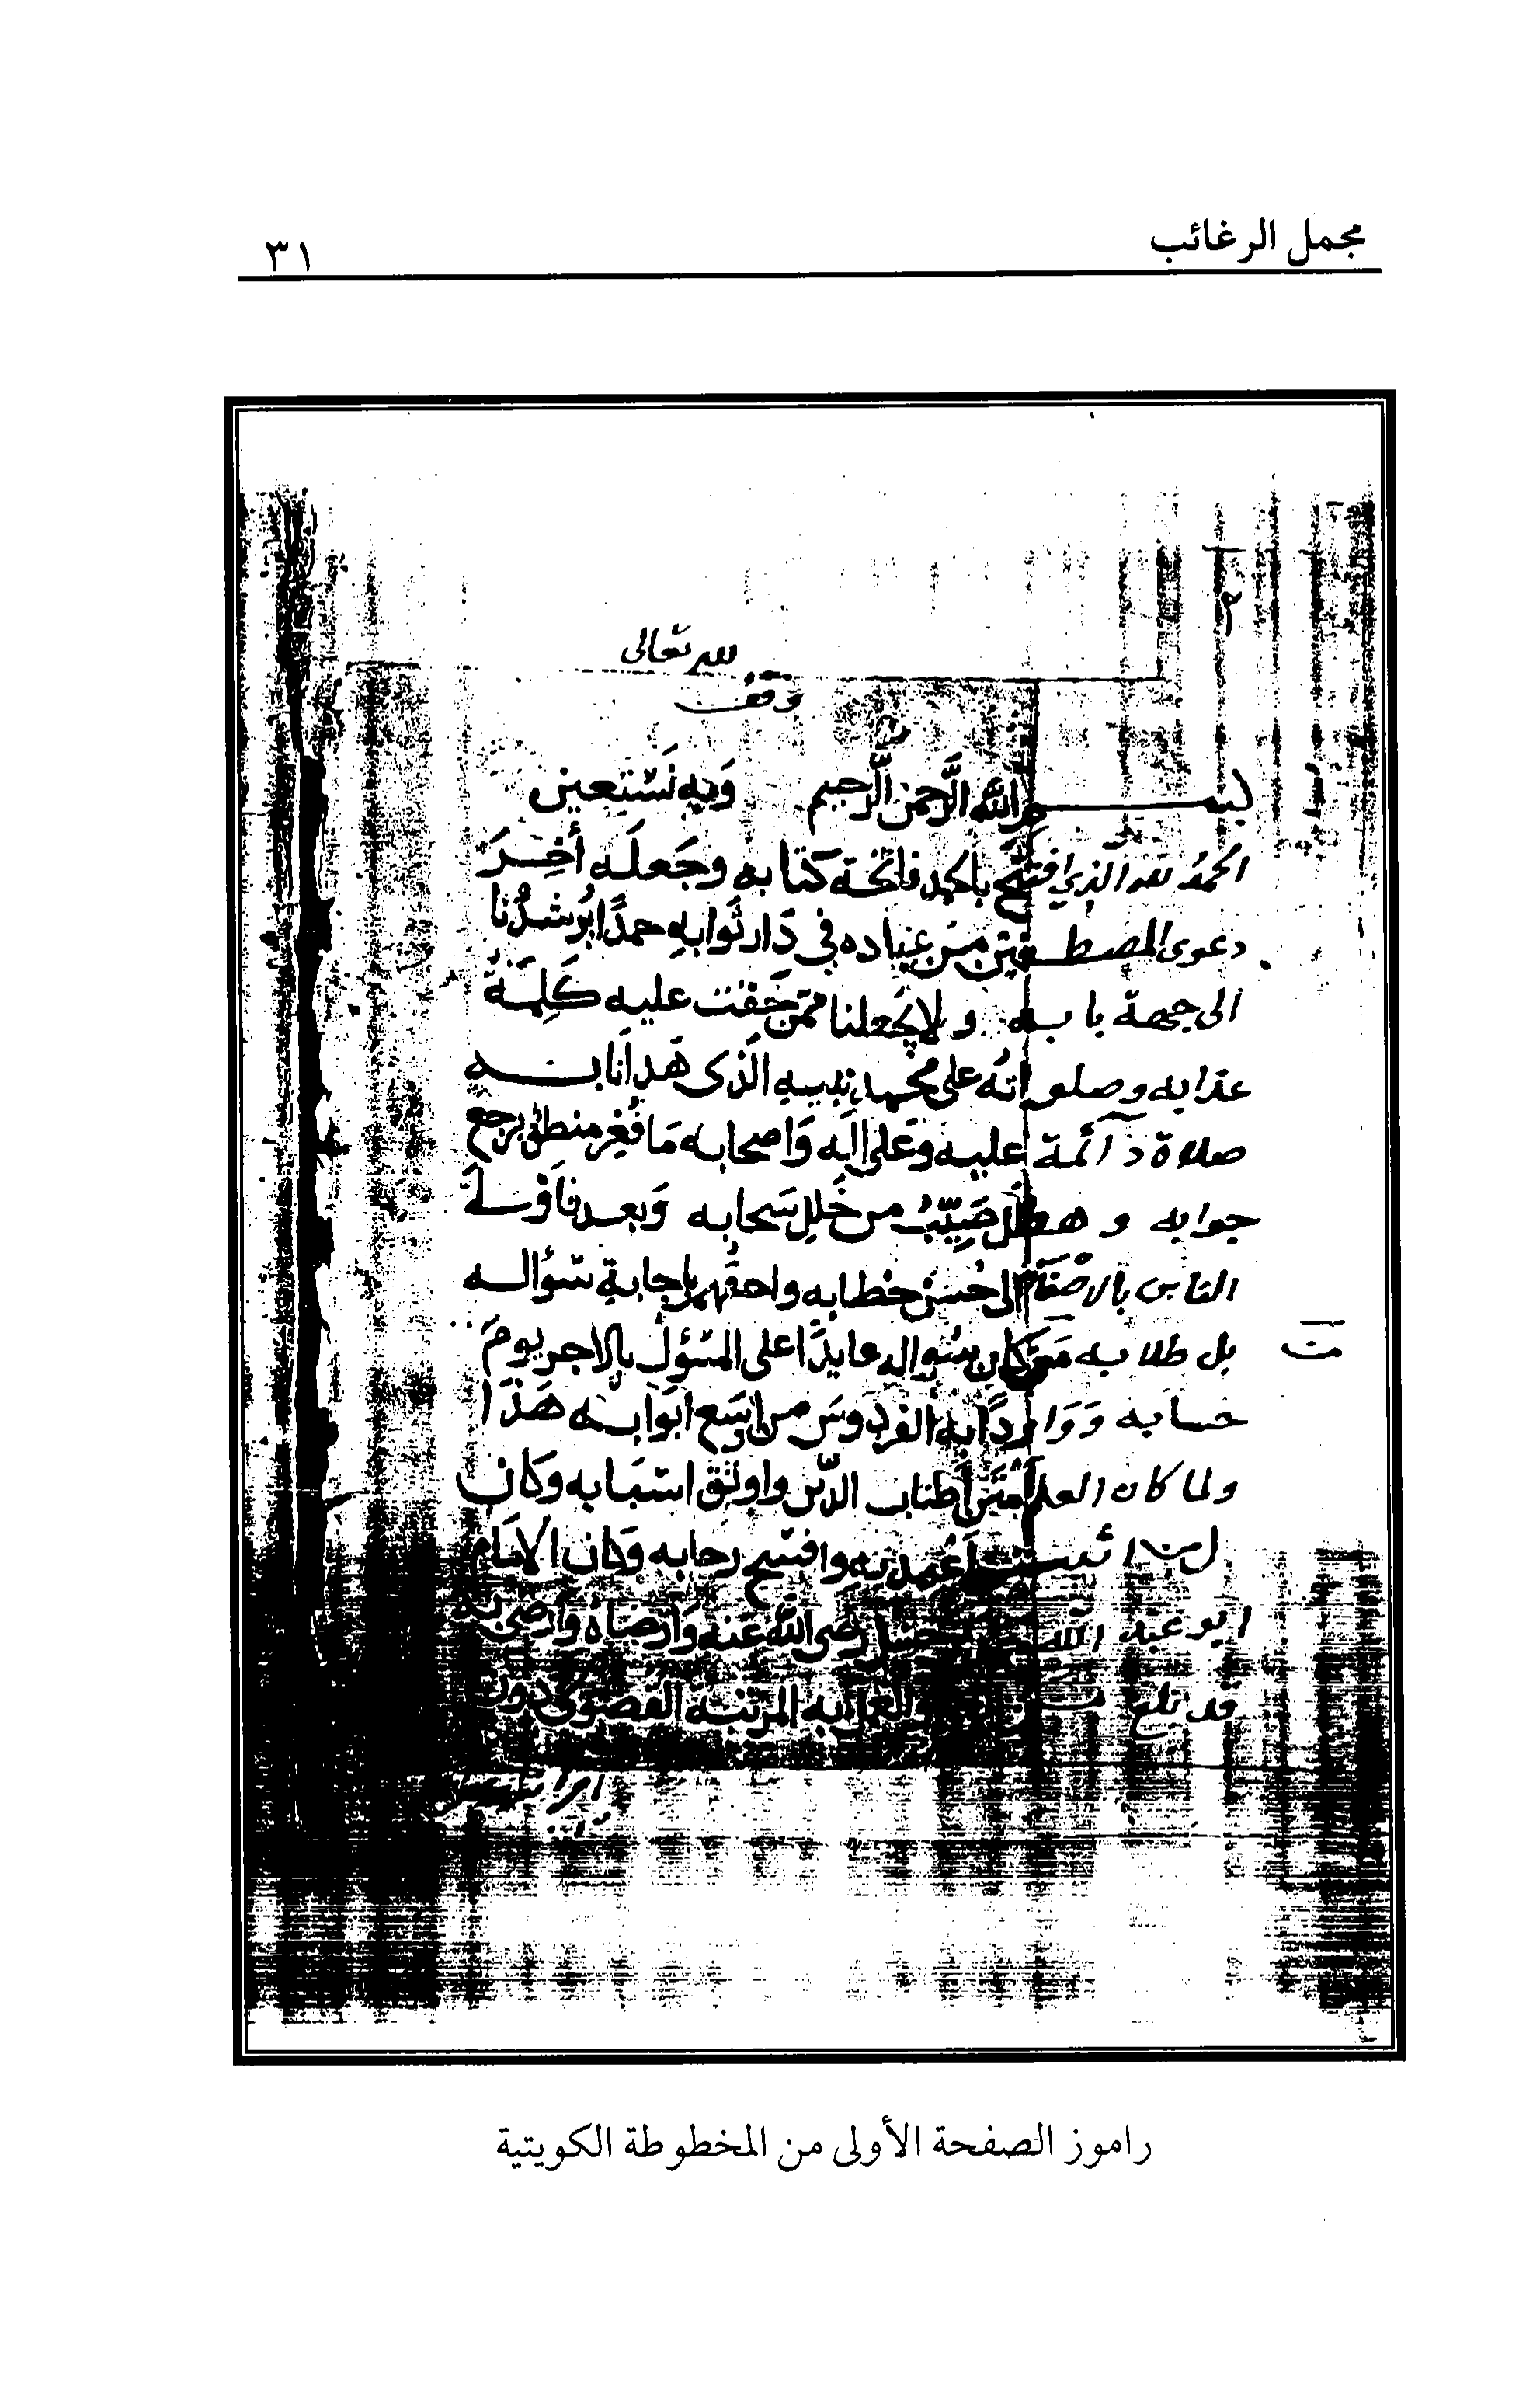 مجمل الرغائب
٣١
لله تعالى
وقف
بسم الله الرحمن الرحيم وبه نستعين
الحمد لله الذي افتتح بالحمد فاتحة كتابه وجعله أخر
دعوى المصطفين من عباده في دار ثوابه حمدا يرشدنا
الى جهة بابه ولا يجعلنا ممن حقت عليه كلمة
عذابه وصلواته على محمد نبيه الذى هدانا به
صلاة دآئمة عليه وعلى اله واصحابه ما فغر منطق برجع
جوابه و هطل صيب من خلل سحابه وبعد فاوسله
الناس بالاصغآء الى حسن خطابه واحقهم باجابة سؤاله
بل طلابه من كان بسواله عايدا على المسؤل بالاجر يوم
حسابه وواردا به الفردوس من اوسع ابوابه هذا
ولما كان العلم امتن أطناب الدين واوثق اسبابه وكان
اعمدته وافسح رحابه وكان الامام
ابو عبد الله رضى الله عنه وارضاه وأرضى به
قد بلغ المرتبة القصوى دون
راموز الصفحة الأولى من المخطوطة الكويتية